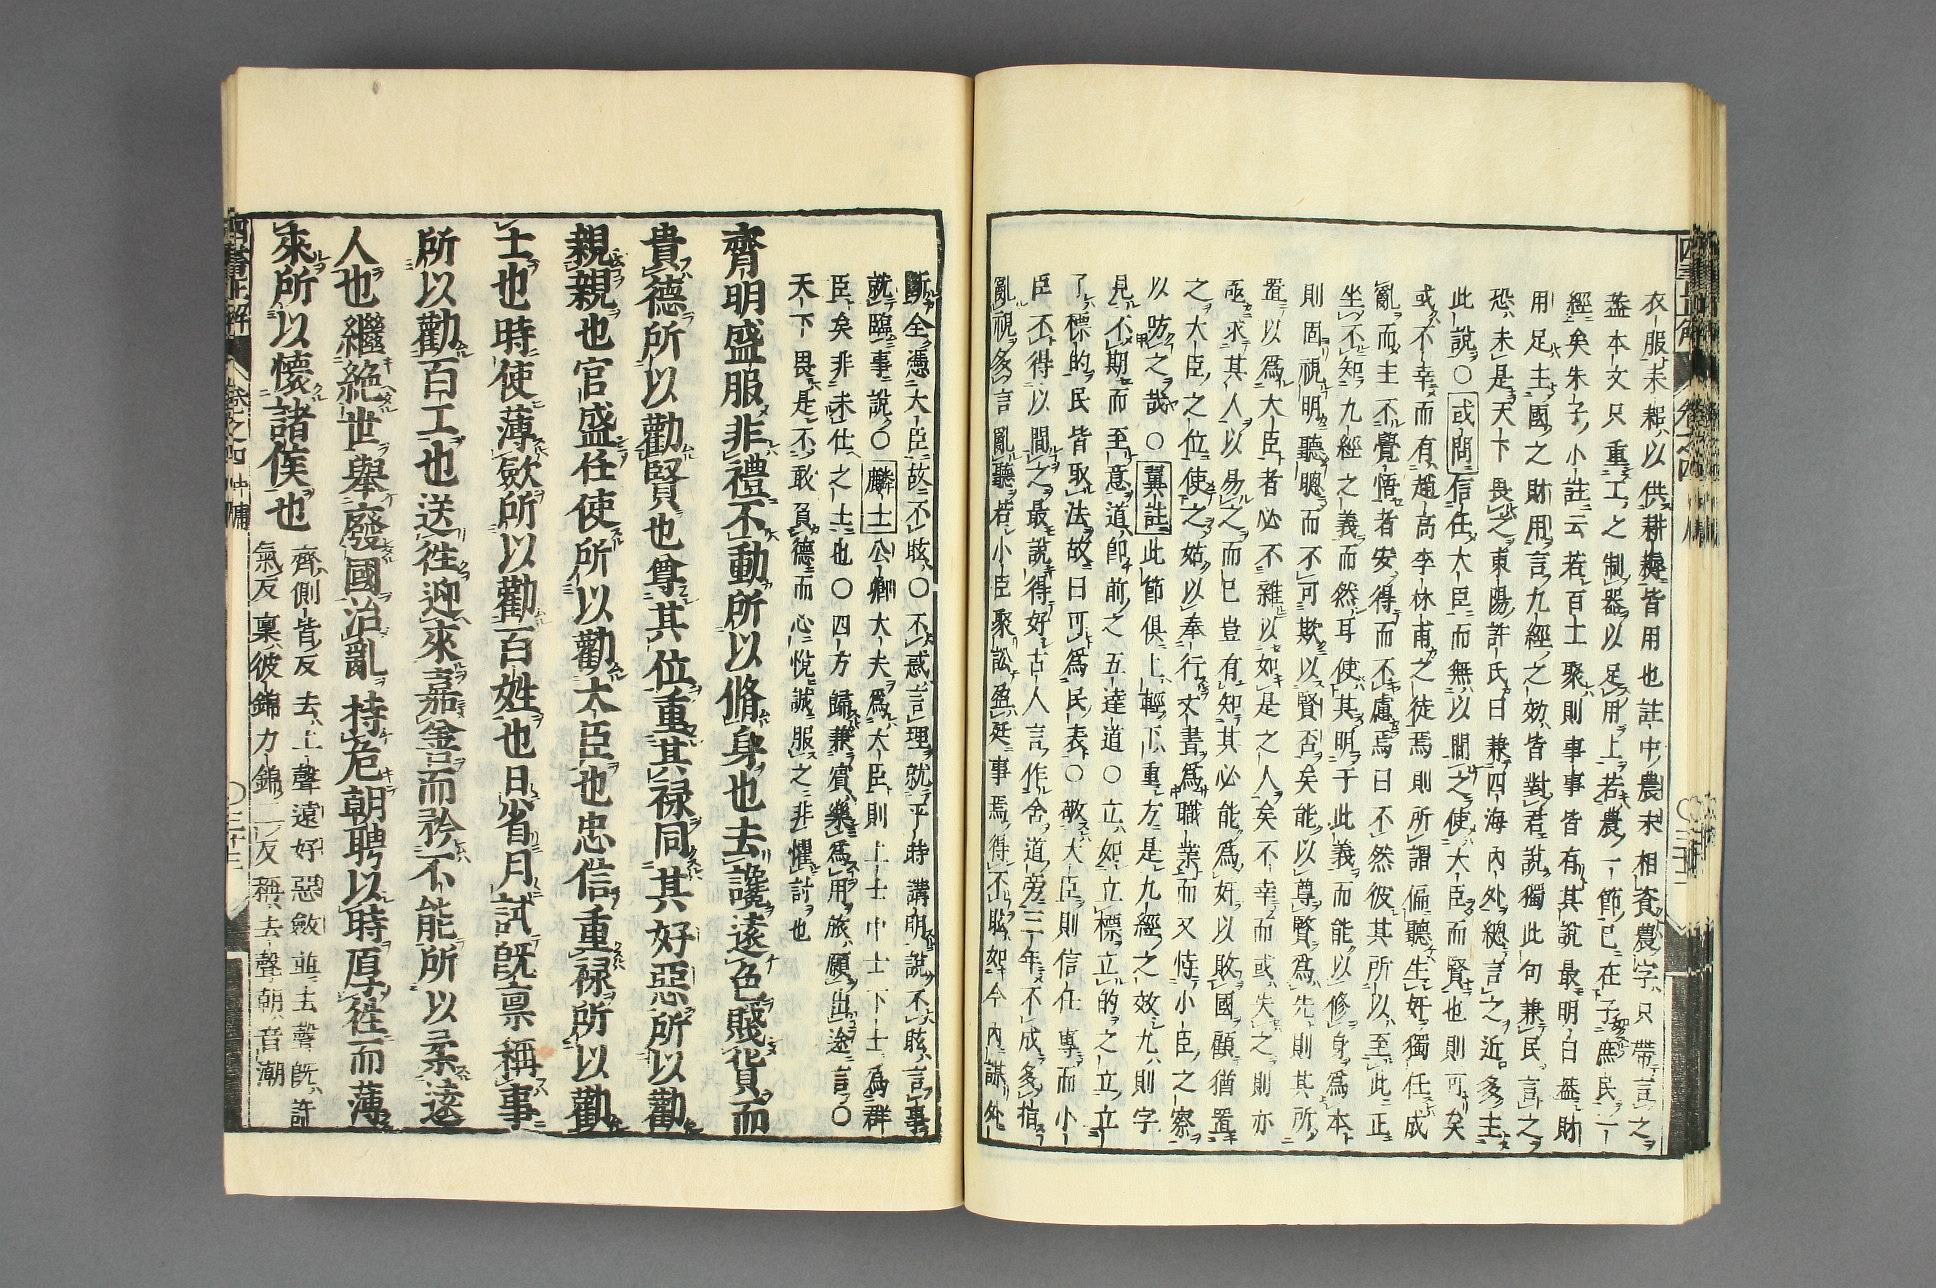 衣服耒耜以供耕耨皆用也註中農末相資農字只帶言之
蓋本文只重工之制器以足用上若農一節已在子庶民一
經矣朱子小註云若百工聚則事事皆有其說最明白蓋財
用足土國之財用言九經之効皆對君說獨此句兼民言之
恐未是天下畏之東陽許氏曰兼四海內外總言之近多主
此說○或問信任大臣而無以間之使大臣而賢也則可矣
或不幸而有趙高李林甫之徒焉則所謂偏聽生奸獨任成
亂而主不覺悟者安得而不慮焉曰不然彼其所以至此正
坐不知九經之義而然耳使其明于此義而能以修身為本
則固視明聽聰而不可欺以賢否矣能以尊賢為先則其所
置以為大臣者必不雜以如是之人矣不幸而或失之則亦
亟求其人以易之而已豈有知其必能為奸以敗國顧猶置
之大臣之位使之姑以奉行文書為職業而又恃小臣之察
以防之哉○翼註此節俱上輕下重方是九經之效九則字
見不期而至意道即前之五達道○立如立標立的之立立
了標的民皆取法故曰可為民表○敬大臣則信任專而小
臣不得以間之最說得好古人言作舍道旁三年不成多指
亂視多言亂聽若小臣聚訟盈廷事焉得不眩如今內謀外
斷全憑大臣故不眩○不惑言理就平時講明說不眩言事
就臨事說○麟士公卿大夫為大臣則上士中士下士為群
臣矣非未仕之士也○四方歸兼賓樂為用旅願出途言○
天下畏是不敢負德而心悅誠服之非懼討也
齊明盛服非禮不動所以脩身也去讒遠色賤貨而
貴德所以勸賢也尊其位重其祿同其好惡所以勸
親親也官盛任使所以勸大臣也忠信重祿所以勸
士也時使薄歛所以勸百姓也日省月試既稟稱事
所以勸百工也送往迎來嘉善而矜不能所以柔遠
人也繼絕世舉廢國治亂持危朝聘以時厚往而薄
來所以懷諸侯也
齊側皆反去上聲遠好惡斂並去聲既許
氣反稟彼錦力錦二反稱去聲朝音潮
四書正解 卷之四 中庸 ○三十三